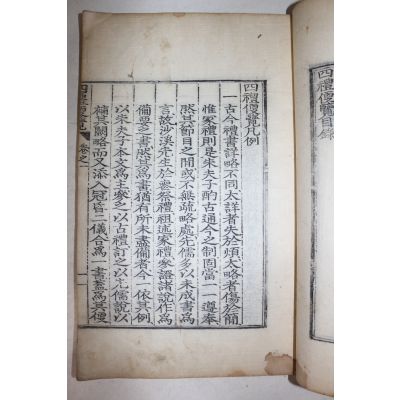 四禮便覽目錄
四禮便覽凡例
一古今禮書詳略不同太詳者失於煩太略者傷於簡
惟家禮則是朱夫子酌古通今之制固當一一遵奉
然其節目之間或不無疏略處先儒多以未成書爲
言故沙溪先生於喪祭禮祖述家禮證諸說作爲
備要之書然其爲書猶有所未盡備者今一依其例
以朱夫子本文爲主參之以古禮訂之以先儒說以
補其闕略而又添入冠昏二儀合爲一書蓋爲其便
四禮便覽 卷之一